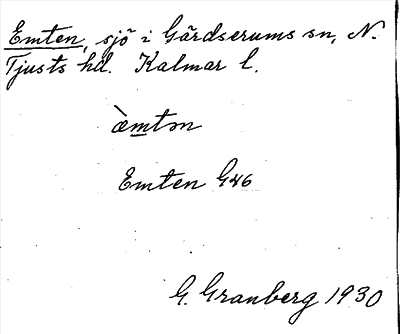 Emten, sjö i Gärdserums sn, N.
Tjusts hd. Kalmar l.
æ̀mtən
Emten G46
G. Granberg 1930